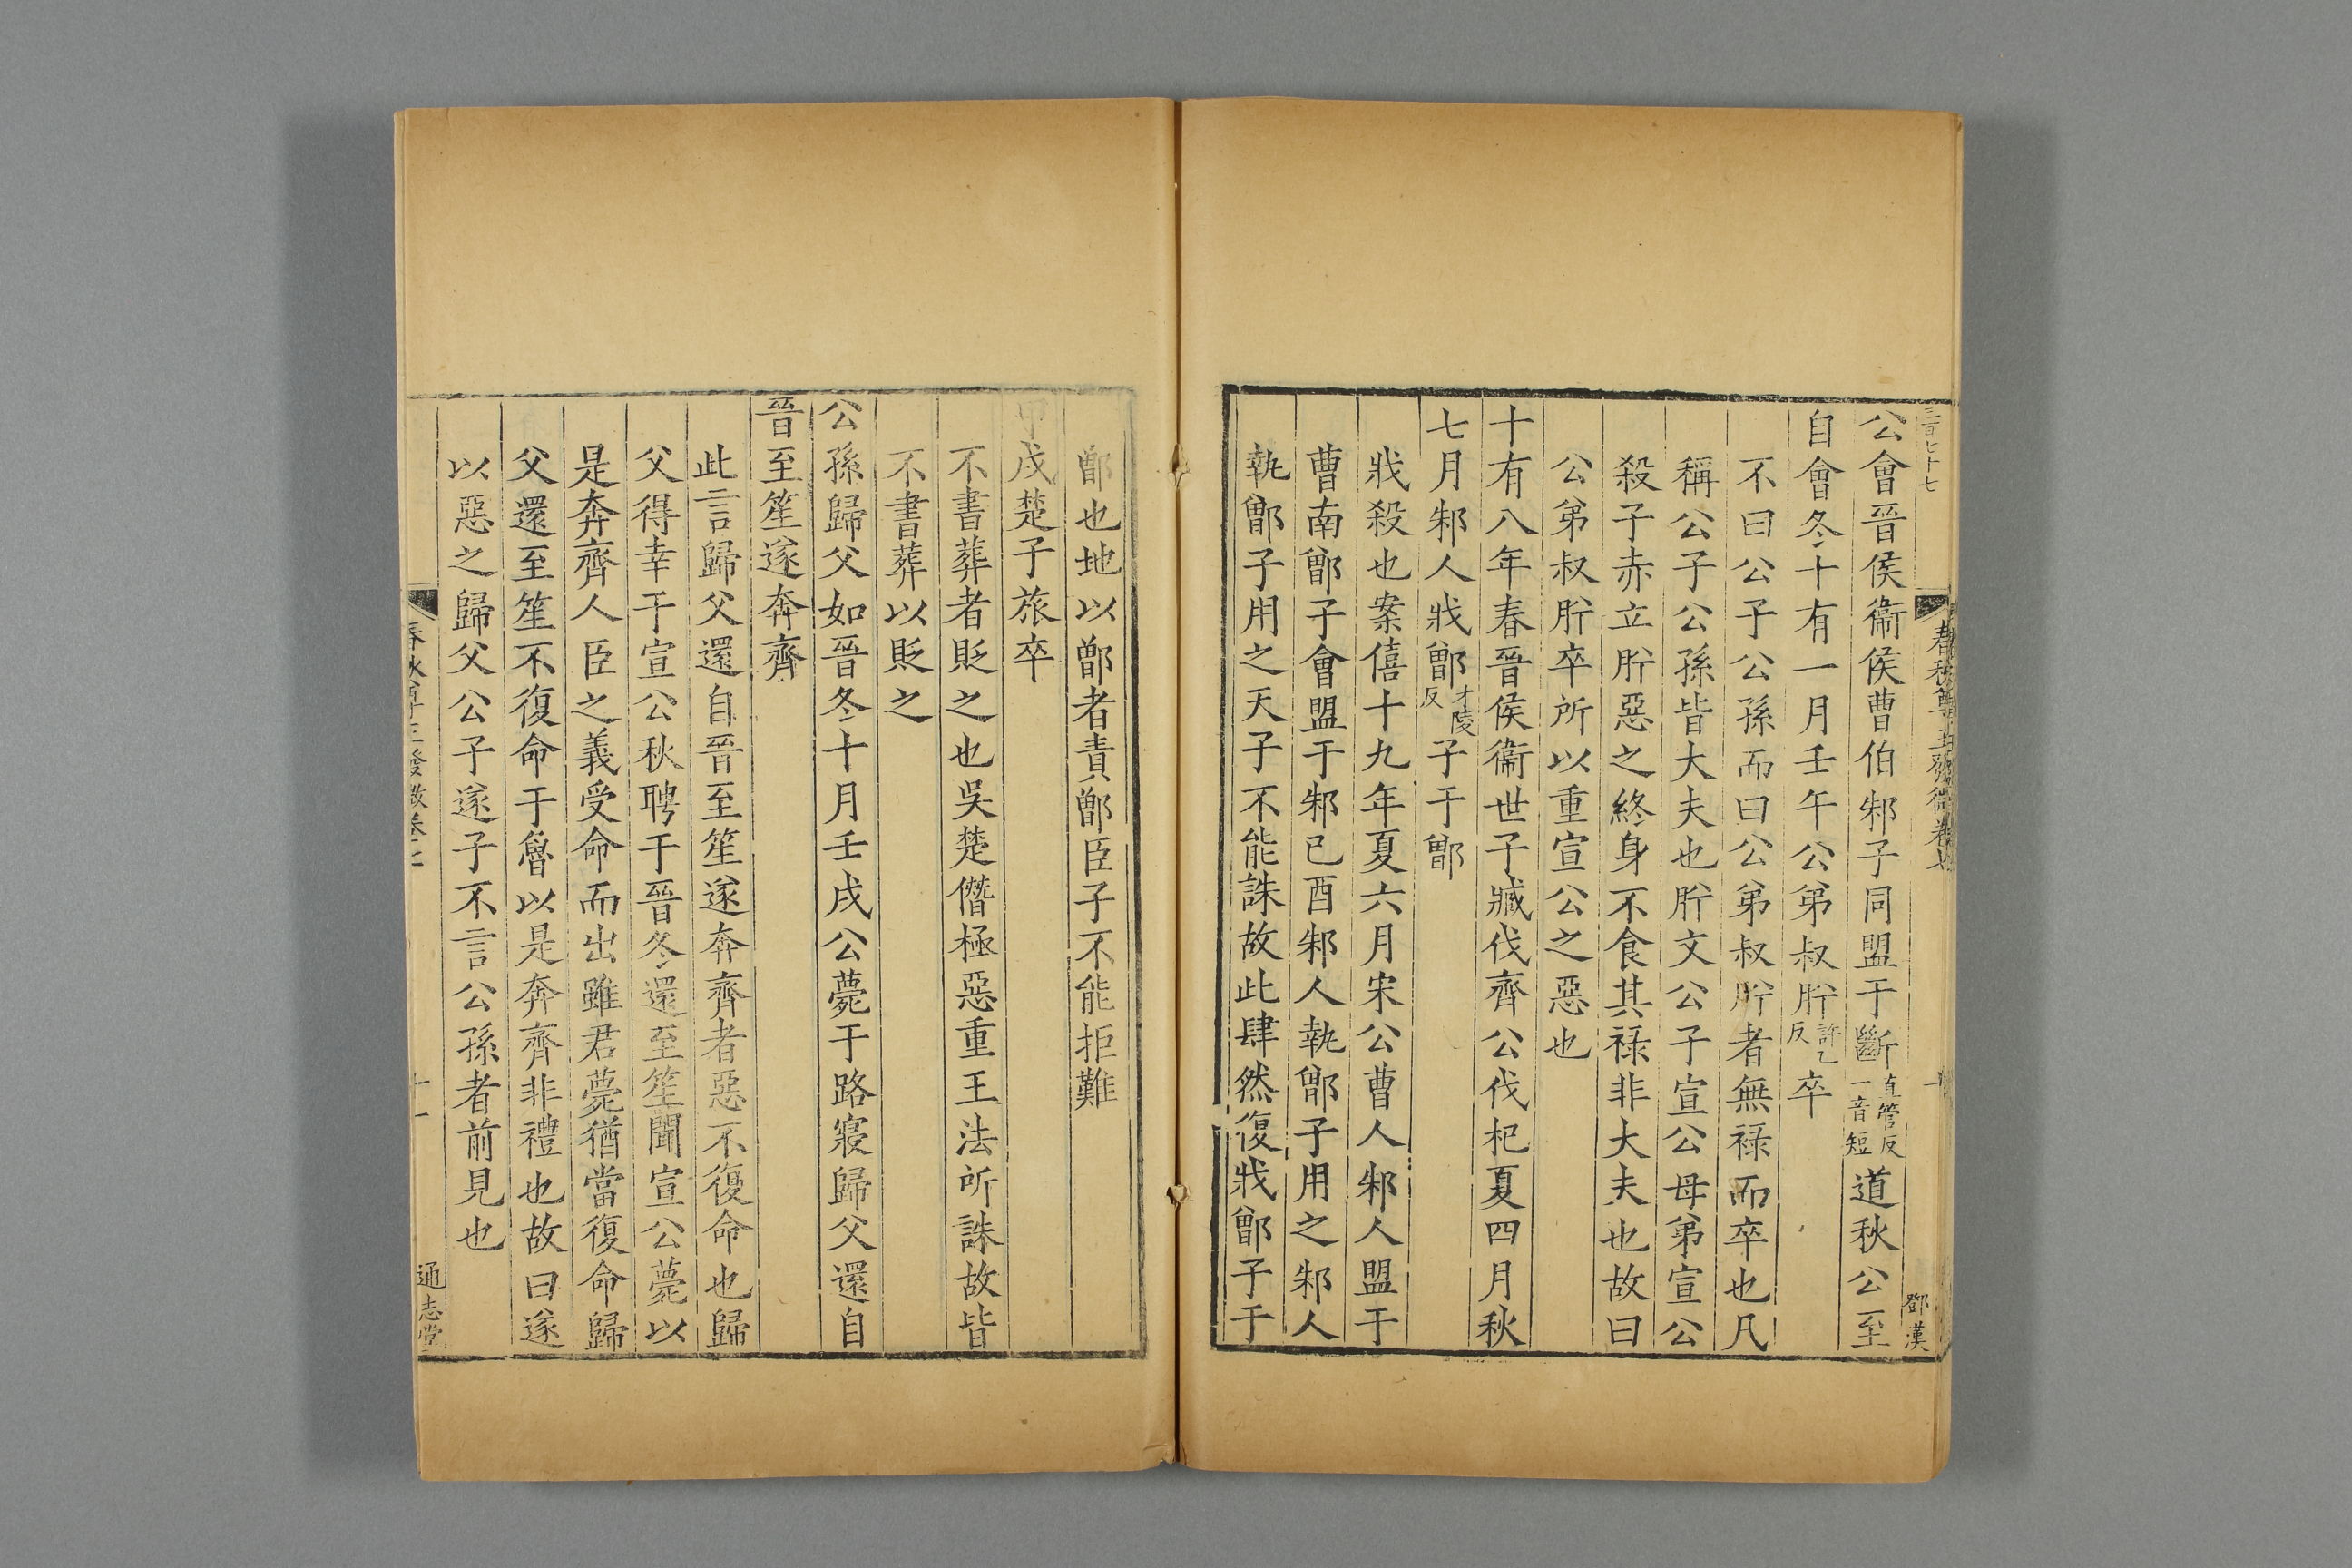 三百七十七
春秋尊王發微卷七
鄧漢
公會晉侯衞侯曹伯邾子同盟于斷直管反一音短道秋公至
自會冬十有一月壬午公弟叔肸許乙反卒
不曰公子公孫而曰公弟叔肸者無禄而卒也凡
稱公子公孫皆大夫也肸文公子宣公母弟宣公
殺子赤立肸惡之終身不食其禄非大夫也故曰
公弟叔肸卒所以重宣公之惡也
十有八年春晉侯衞世子臧伐齊公伐杞夏四月秋
七月邾人戕鄫才陵反子于鄫
戕殺也案僖十九年夏六月宋公曹人邾人盟于
曹南鄫子會盟于邾己酉邾人執鄫子用之邾人
執鄫子用之天子不能誅故此肆然復戕鄫子于
鄫也地以鄫者責鄫臣子不能拒難
甲戌楚子旅卒
不書葬者貶之也吳楚僭極惡重王法所誅故皆
不書葬以貶之
公孫歸父如晉冬十月壬戌公薨于路寢歸父還自
晉至笙遂奔齊
此言歸父還自晉至笙遂奔齊者惡不復命也歸
父得幸于宣公秋聘于晉冬還至笙聞宣公薨以
是奔齊人臣之義受命而出雖君薨猶當復命歸
父還至笙不復命于魯以是奔齊非禮也故曰遂
以惡之歸父公子遂子不言公孫者前見也
春秋尊王發微卷七
十一
通志堂